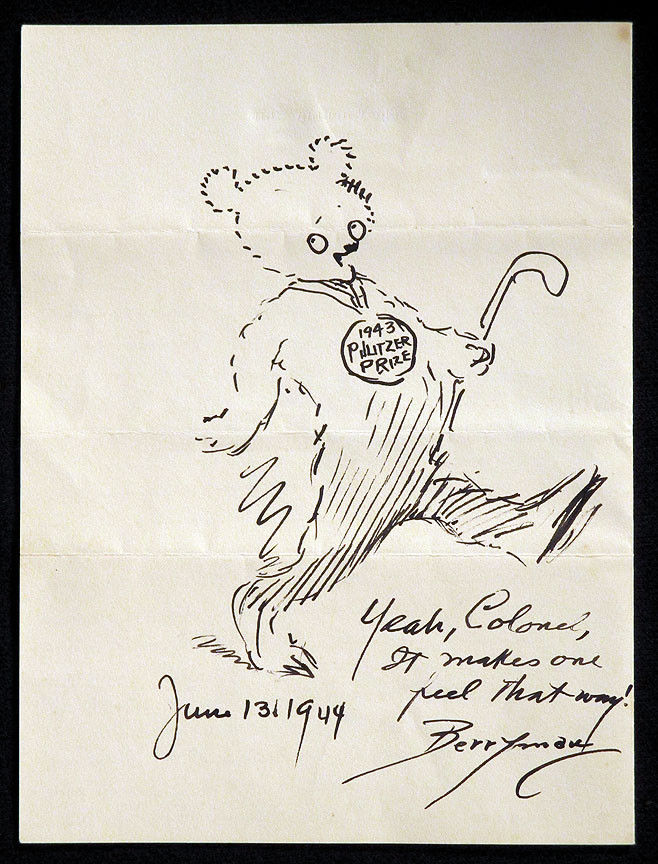 1943
PULITZER
PRIZE
Yeah, Colonel,
It makes one
feel that way!
Berryman
June 13, 1944